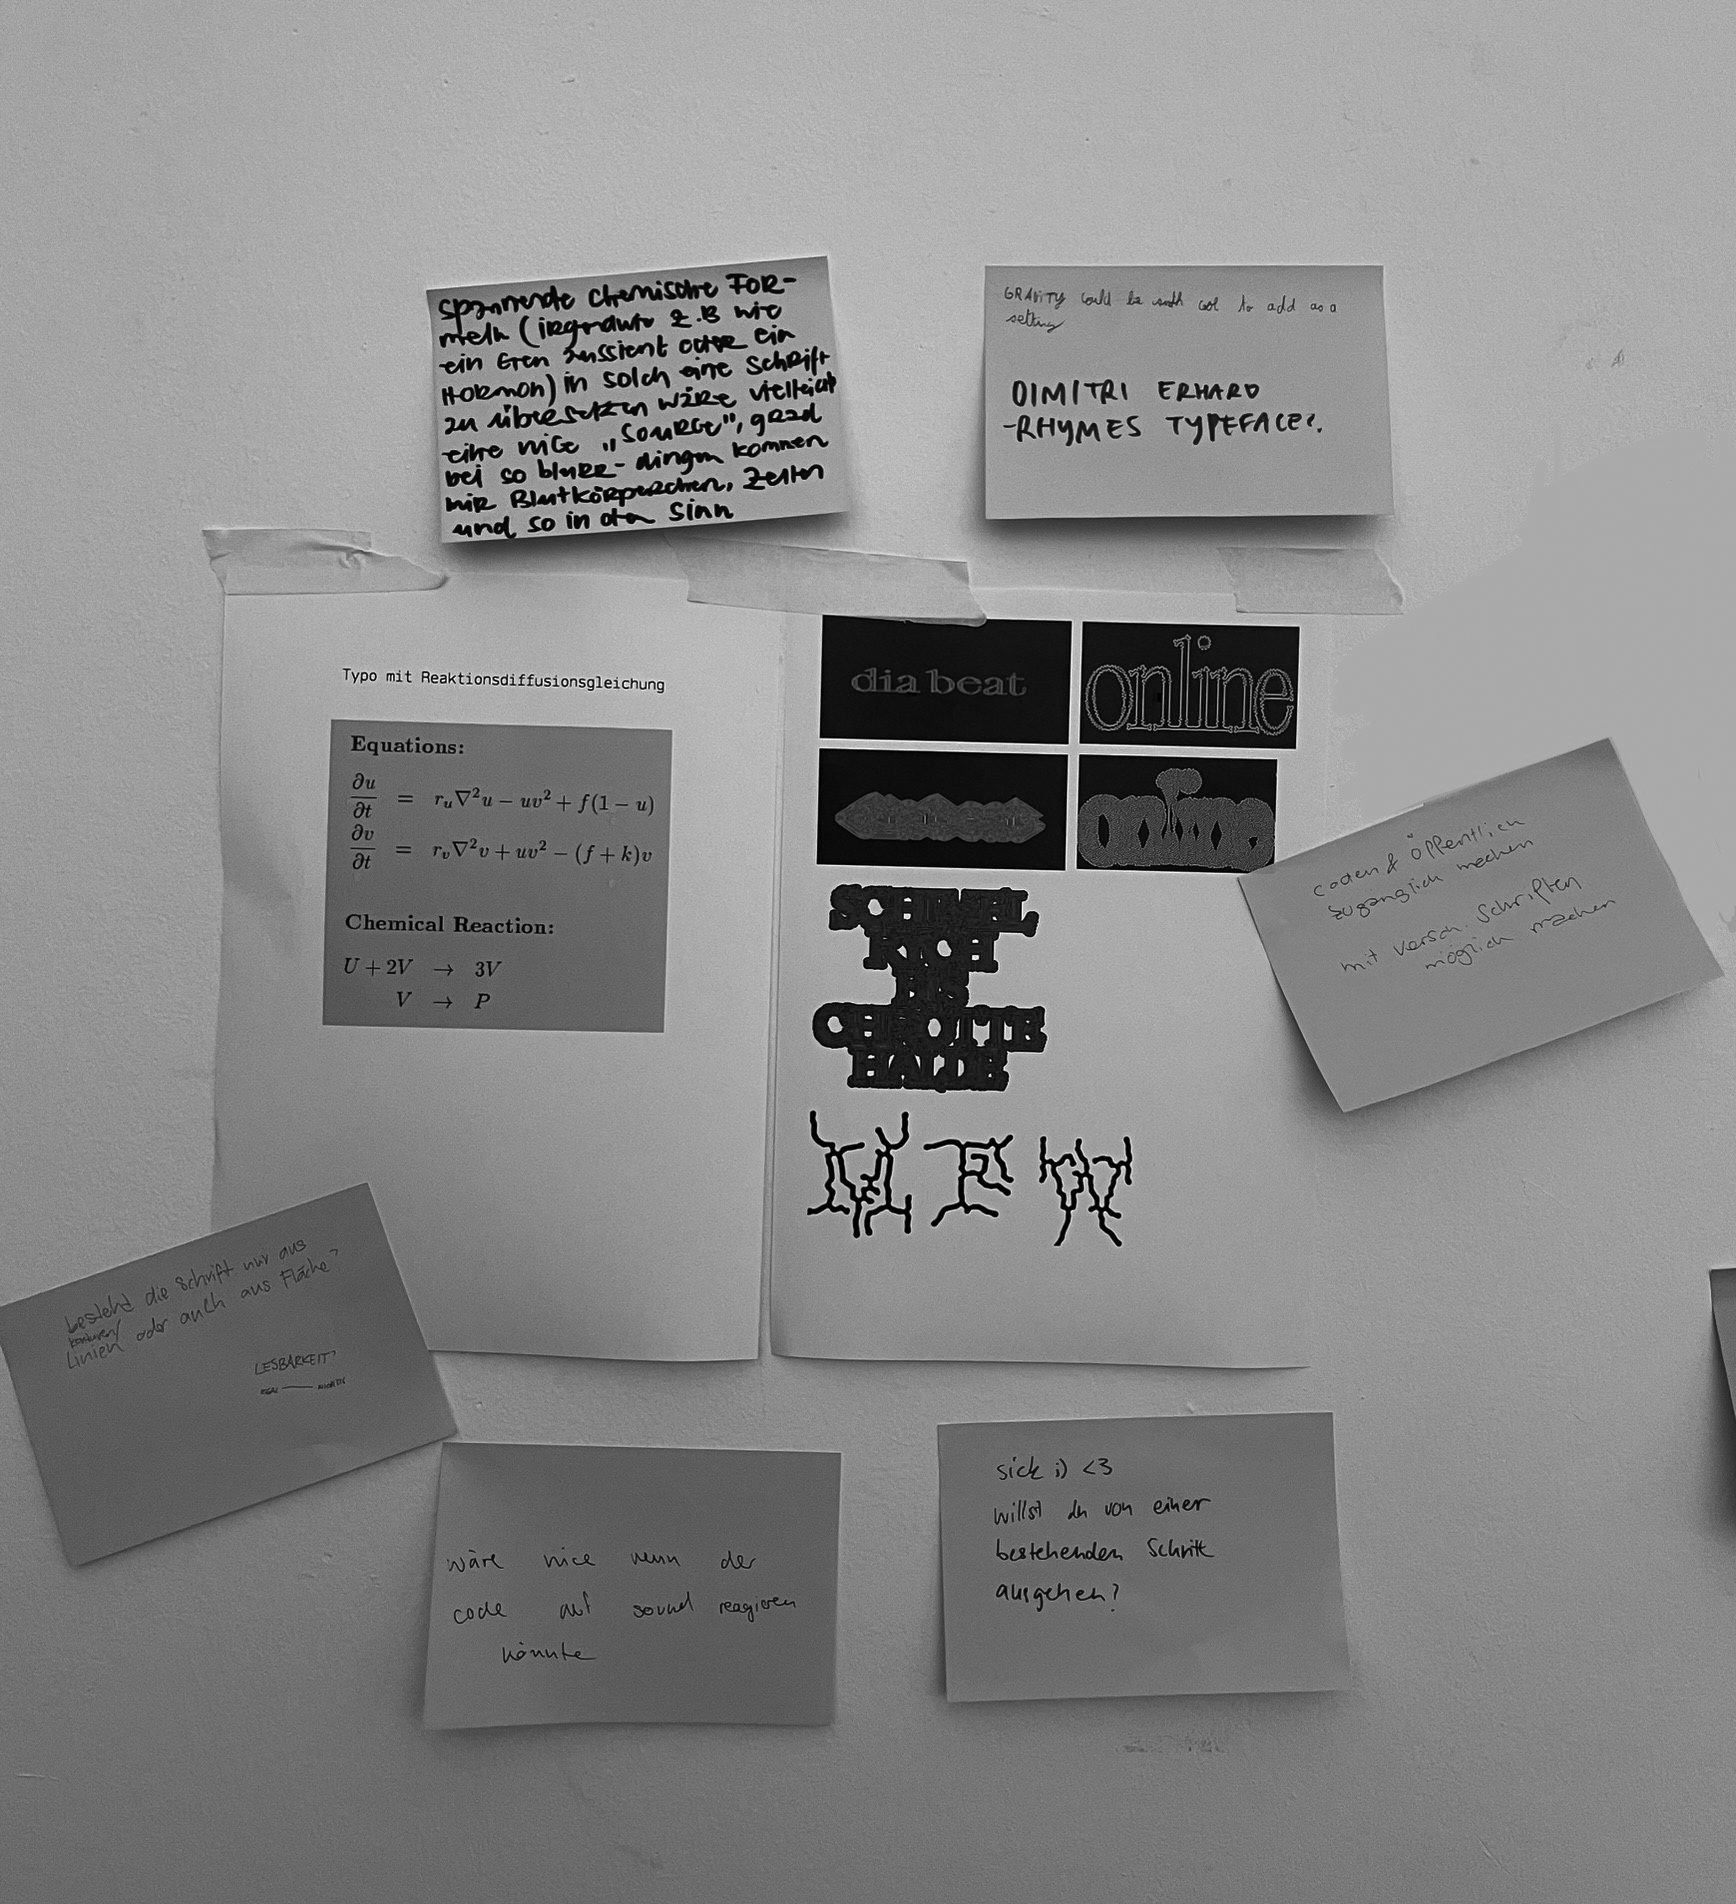 spannende chemische FOR-
meln (irgendwie z.B wie
ein Gen aussieht oder ein
Hormon) in solch eine Schrift
zu übersetzen wäre vielleicht
eine nice „Source", grad
bei so blurr-dingen kommen
mir Blutkörperchen, Zellen
und so in den Sinn
GRAVITY could be cool to add as a
setting
DIMITRI ERHARD
-RHYMES TYPEFACE?
Typo mit Reaktionsdiffusionsgleichung
Equations:
∂u/∂t = r_u∇²u − uv² + f(1 − u)
∂v/∂t = r_v∇²v + uv² − (f + k)v
Chemical Reaction:
U + 2V → 3V
V → P
dia beat
online
online
HALDE
coden & öffentlich
zugänglich machen
mit versch. Schriften
möglich machen
besteht die Schrift nur aus
konturen/
Linien oder auch aus Fläche?
LESBARKEIT?
wäre nice wenn der
code auf sound reagieren
könnte
sick :) <3
willst du von einer
bestehenden Schrift
ausgehen?